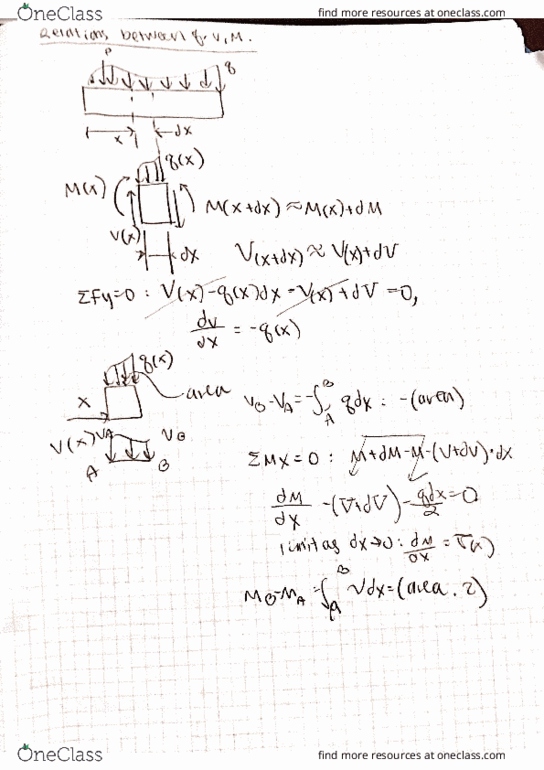 OneClass
find more resources at oneclass.com
Relations between q, V, M.
P
q
x
dx
q(x)
M(x)
M(x+dx) ≈ M(x)+dM
V(x)
dx
V(x+dx) ≈ V(x)+dV
ΣFy=0 : V(x) - q(x)dx - V(x) + dV = 0,
dv/dx = -q(x)
q(x)
area
x
V_B - V_A = -∫_A^B qdx : -(area)
V(x) V_A
V_B
A
B
ΣMx=0 : M+dM-M-(V+dV)·dx
dM/dx -(V+dV) - qdx/2 = 0
limit as dx→0 : dM/dx = V(x)
M_B - M_A = ∫_A^B Vdx = (area . 2)
OneClass
find more resources at oneclass.com